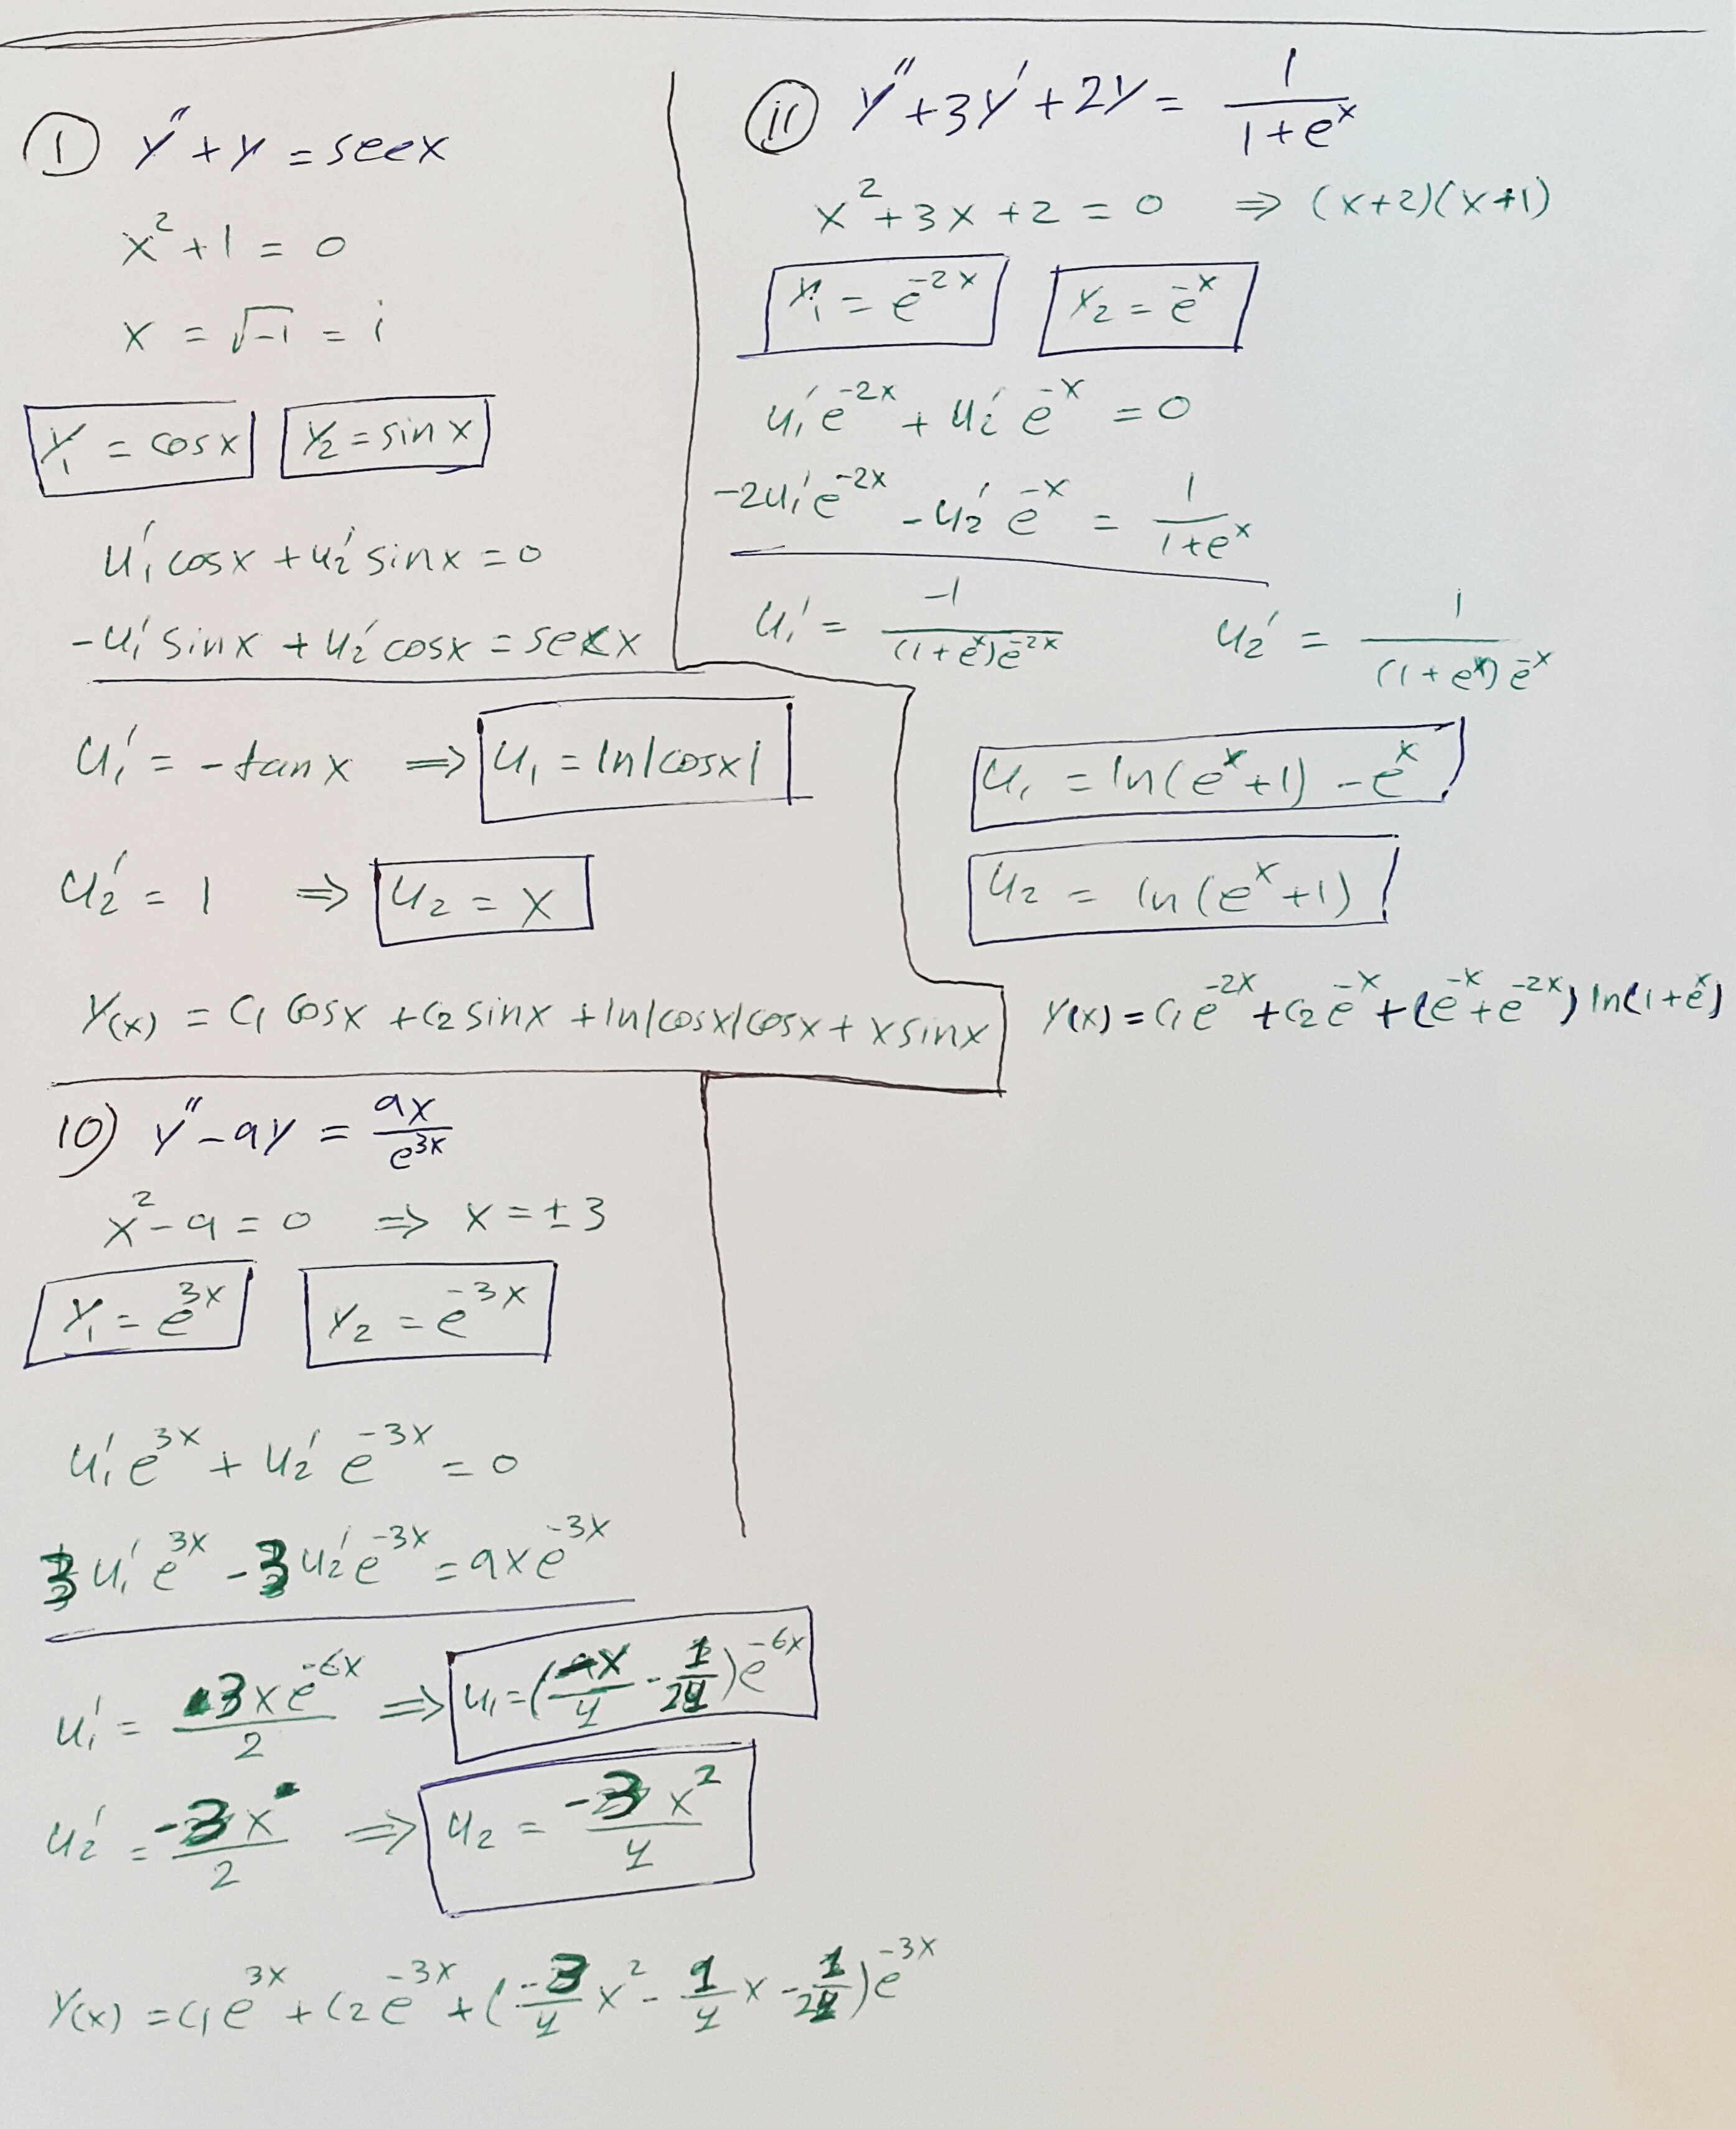 ① y″ + y = secx
x² + 1 = 0
x = √-1 = i
y₁ = cosx   y₂ = sinx
u₁′ cosx + u₂′ sinx = 0
-u₁′ sinx + u₂′ cosx = secx
u₁′ = -tanx ⇒ u₁ = ln|cosx|
u₂′ = 1 ⇒ u₂ = x
y(x) = c₁ cosx + c₂ sinx + ln|cosx|cosx + x sinx
⑪ y″ + 3y′ + 2y = 1/(1+e^x)
x² + 3x + 2 = 0 ⇒ (x+2)(x+1)
y₁ = e^-2x   y₂ = e^-x
u₁′ e^-2x + u₂′ e^-x = 0
-2u₁′ e^-2x - u₂′ e^-x = 1/(1+e^x)
u₁′ = -1/((1+e^x)e^-2x)   u₂′ = 1/((1+e^x)e^-x)
u₁ = ln(e^x+1) - e^x
u₂ = ln(e^x+1)
y(x) = c₁e^-2x + c₂e^-x + (e^-x + e^-2x) ln(1+e^x)
10) y″ - 9y = 9x/e^3x
x² - 9 = 0 ⇒ x = ±3
y₁ = e^3x   y₂ = e^-3x
u₁′ e^3x + u₂′ e^-3x = 0
3u₁′ e^3x - 3u₂′ e^-3x = 9xe^-3x
u₁′ = 3xe^-6x/2 ⇒ u₁ = (-x/4 - 1/24)e^-6x
u₂′ = -3x/2 ⇒ u₂ = -3x²/4
y(x) = c₁e^3x + c₂e^-3x + (-3/4 x² - 1/4 x - 1/24)e^-3x